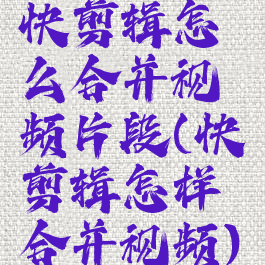 快剪辑怎
么合并视
频片段(快
剪辑怎样
合并视频)